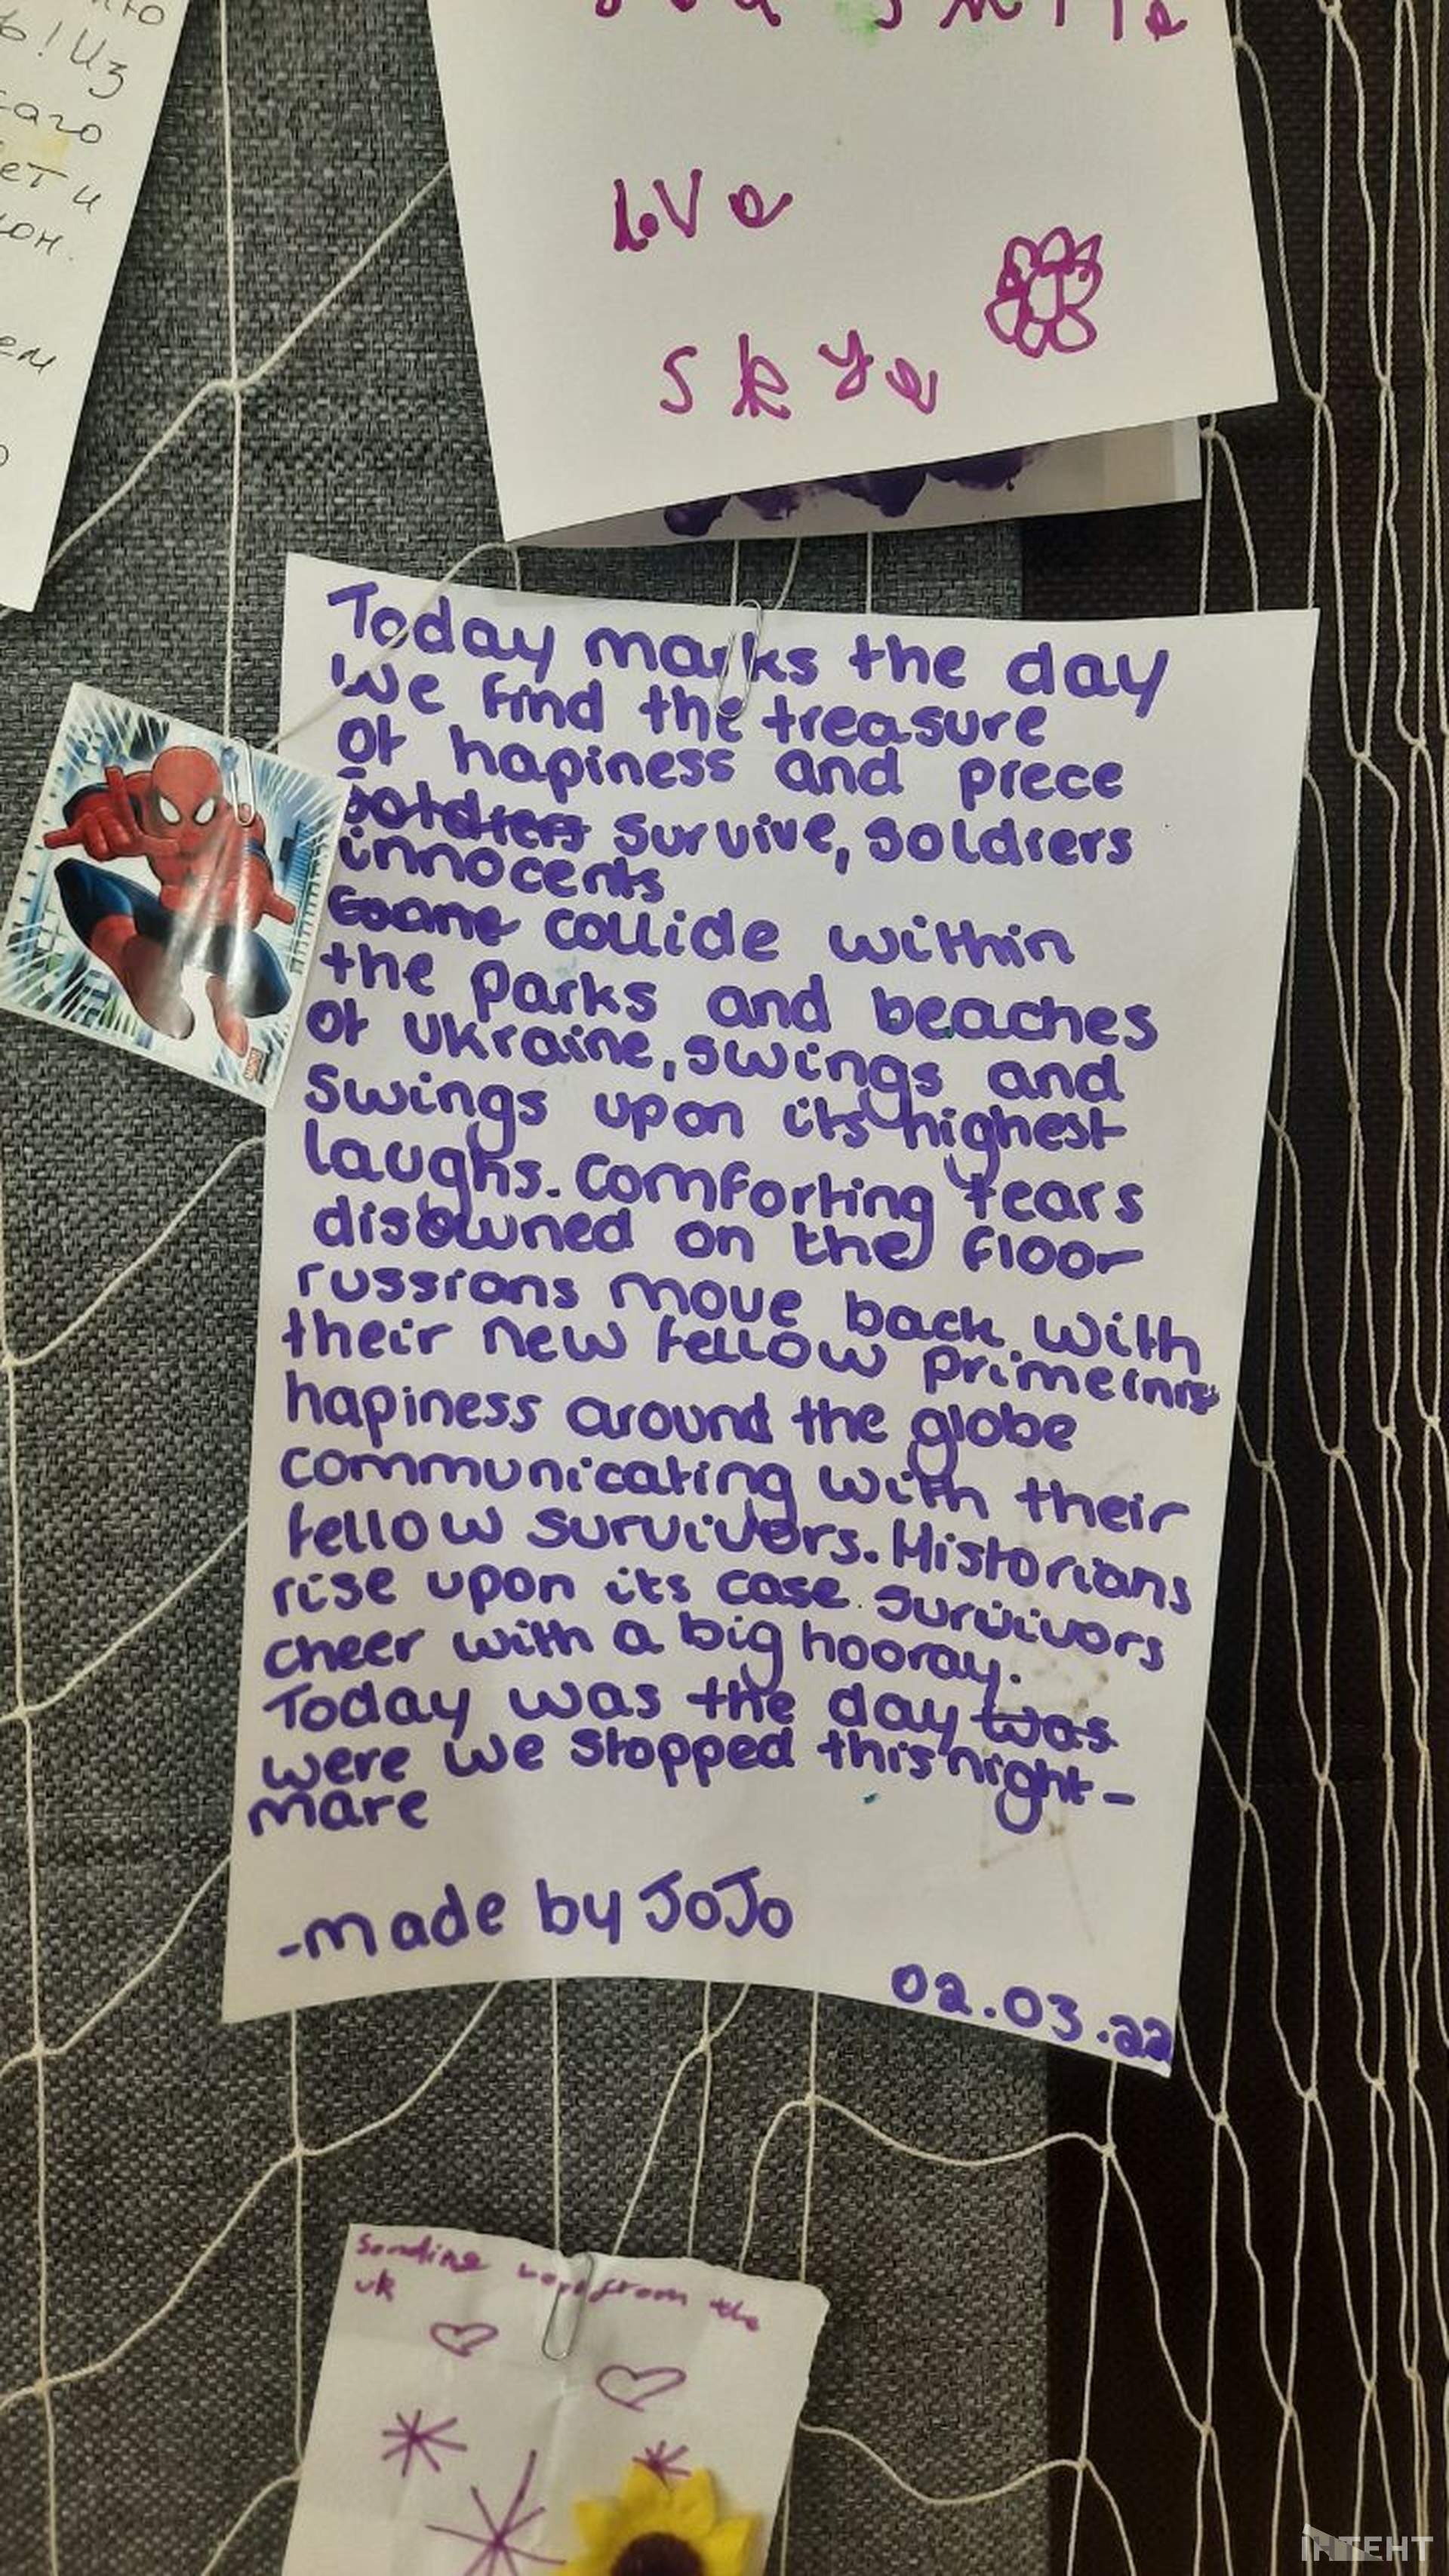 ь! Из
ет и
Love
Skye
Today marks the day
we find the treasure
of hapiness and piece
Soldiers survive, soldiers
innocents
collide within
the parks and beaches
of ukraine, swings and
swings upon its highest
laughs. Comforting tears
disowned on the floor
russians move back with
their new fellow
hapiness around the globe
communicating with their
fellow survivors. Historians
rise upon its case. Survivors
cheer with a big hooray.
Today was the day was
were we stopped this night-
mare
-made by JoJo
02.03.22
from the
uk
ІНТЕНТ